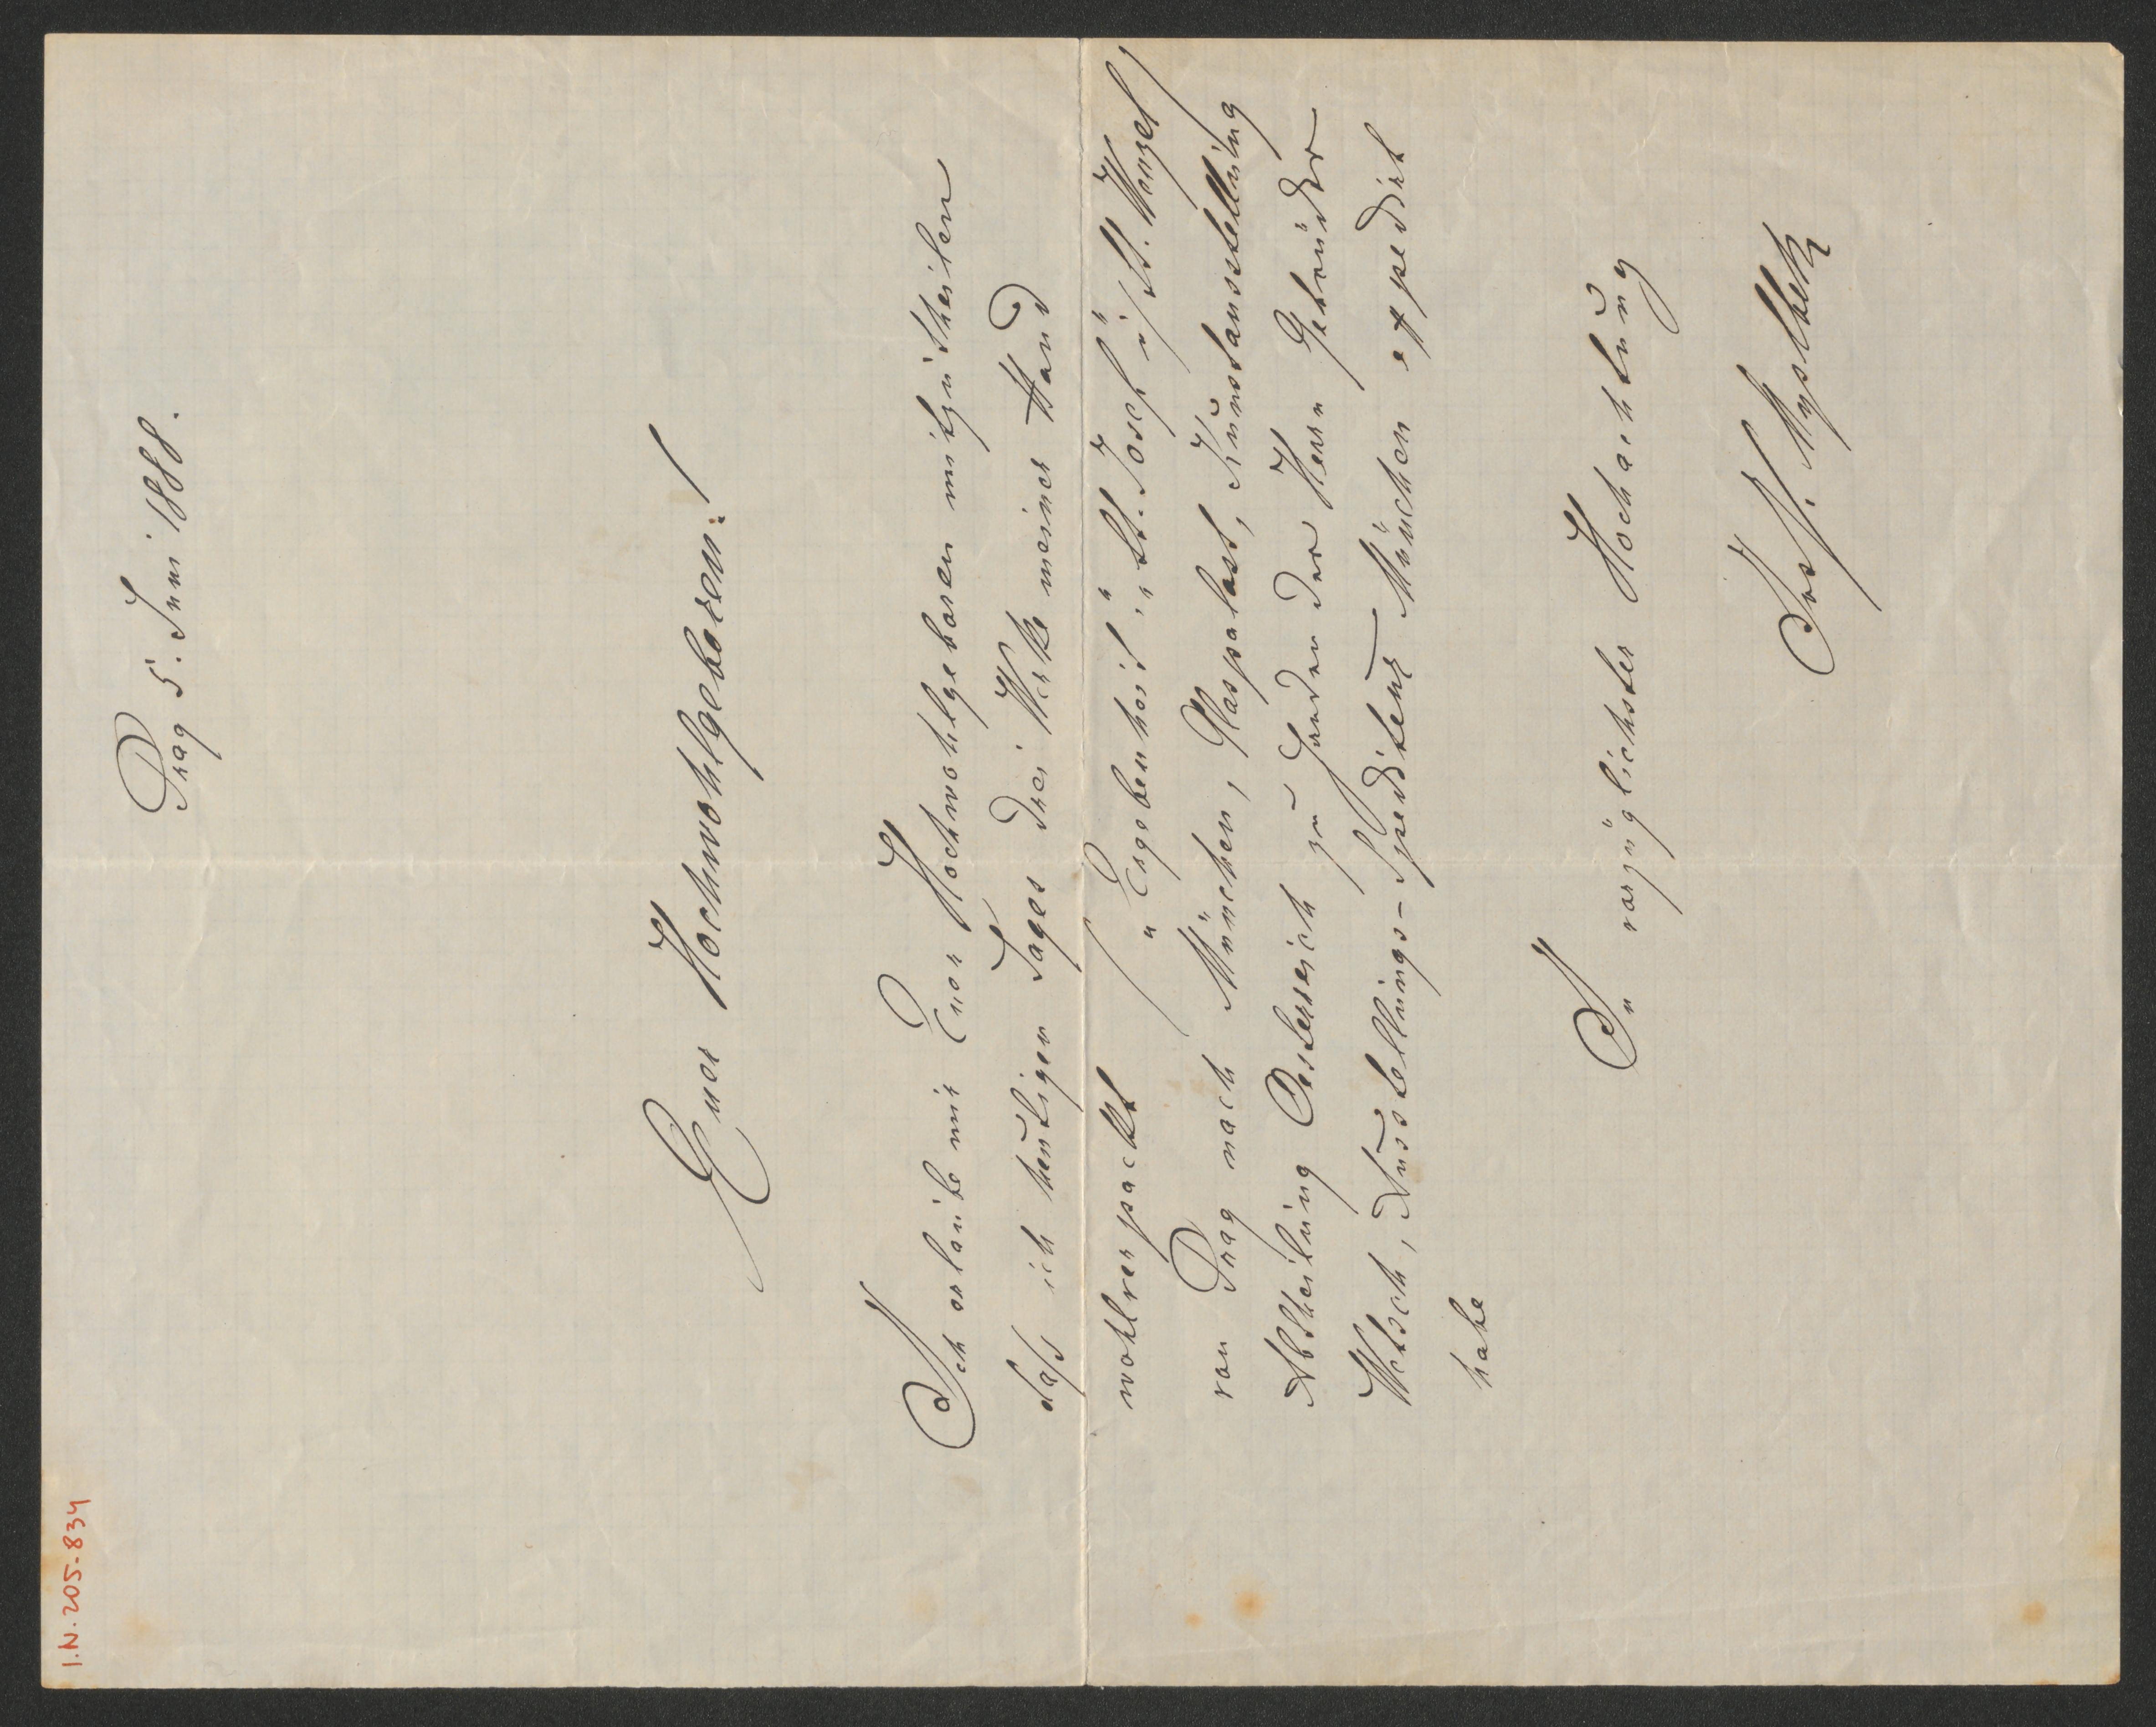 I.N. 205.834
Prag 5. Juni 1888.
Euer Hochwohlgeboren!
Ich erlaube mir Euer Hochwohlgeboren mitzutheilen
daß ich heutigen Tages drei Werke meiner Hand
wohlverpackt ( "Ergebenheit", "St. Josef" u. St. Wenzel )
von Prag nach München, Glaspalast, Kunstausstellung
Abtheilung Oesterreich zu Handen der Herrn Gebrüder
Wetsch, Ausstellungs-Spediteur München expedirt
habe
In vorzüglichster Hochachtung
Jos V. Myslbek